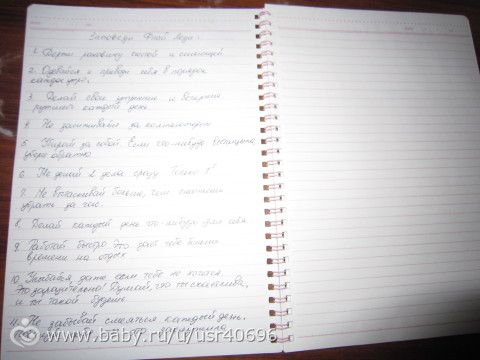 Заповеди Флай Леди:
1. Держи раковину чистой и сияющей
2. Одевайся и приводи себя в порядок
каждое утро.
3. Делай свои утренние и вечерние
рутины каждый день
4. Не засиживайся за компьютером
5. Убирай за собой. Если что-нибудь вытащила,
убери обратно
6. Не делай 2 дела сразу. Только 1!
7. Не вытаскивай больше, чем сможешь
убрать за час.
8. Делай каждый день что-нибудь для себя
9. Работай быстро это даст тебе больше
времени на отдых
10. Улыбайся даже если тебе не хочется.
Это заразительно! Думай, что ты счастлива,
и ты такой будешь.
11. Не забывай смеяться каждый день.
www.baby.ru/u/usr40696